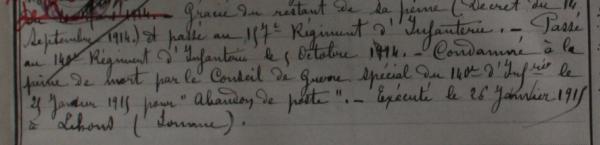 1914. Gracié du restant de sa peine (Décret du 14
Septembre 1914) et passé au 157e Régiment d'Infanterie. - Passé
au 140e Régiment d'Infanterie le 5 Octobre 1914. - Condamné à la
peine de mort par le Conseil de Guerre spécial du 140e d'Infrie le
25 Janvier 1915 pour "Abandon de poste". - Exécuté le 26 Janvier 1915
à Lihons (Somme).